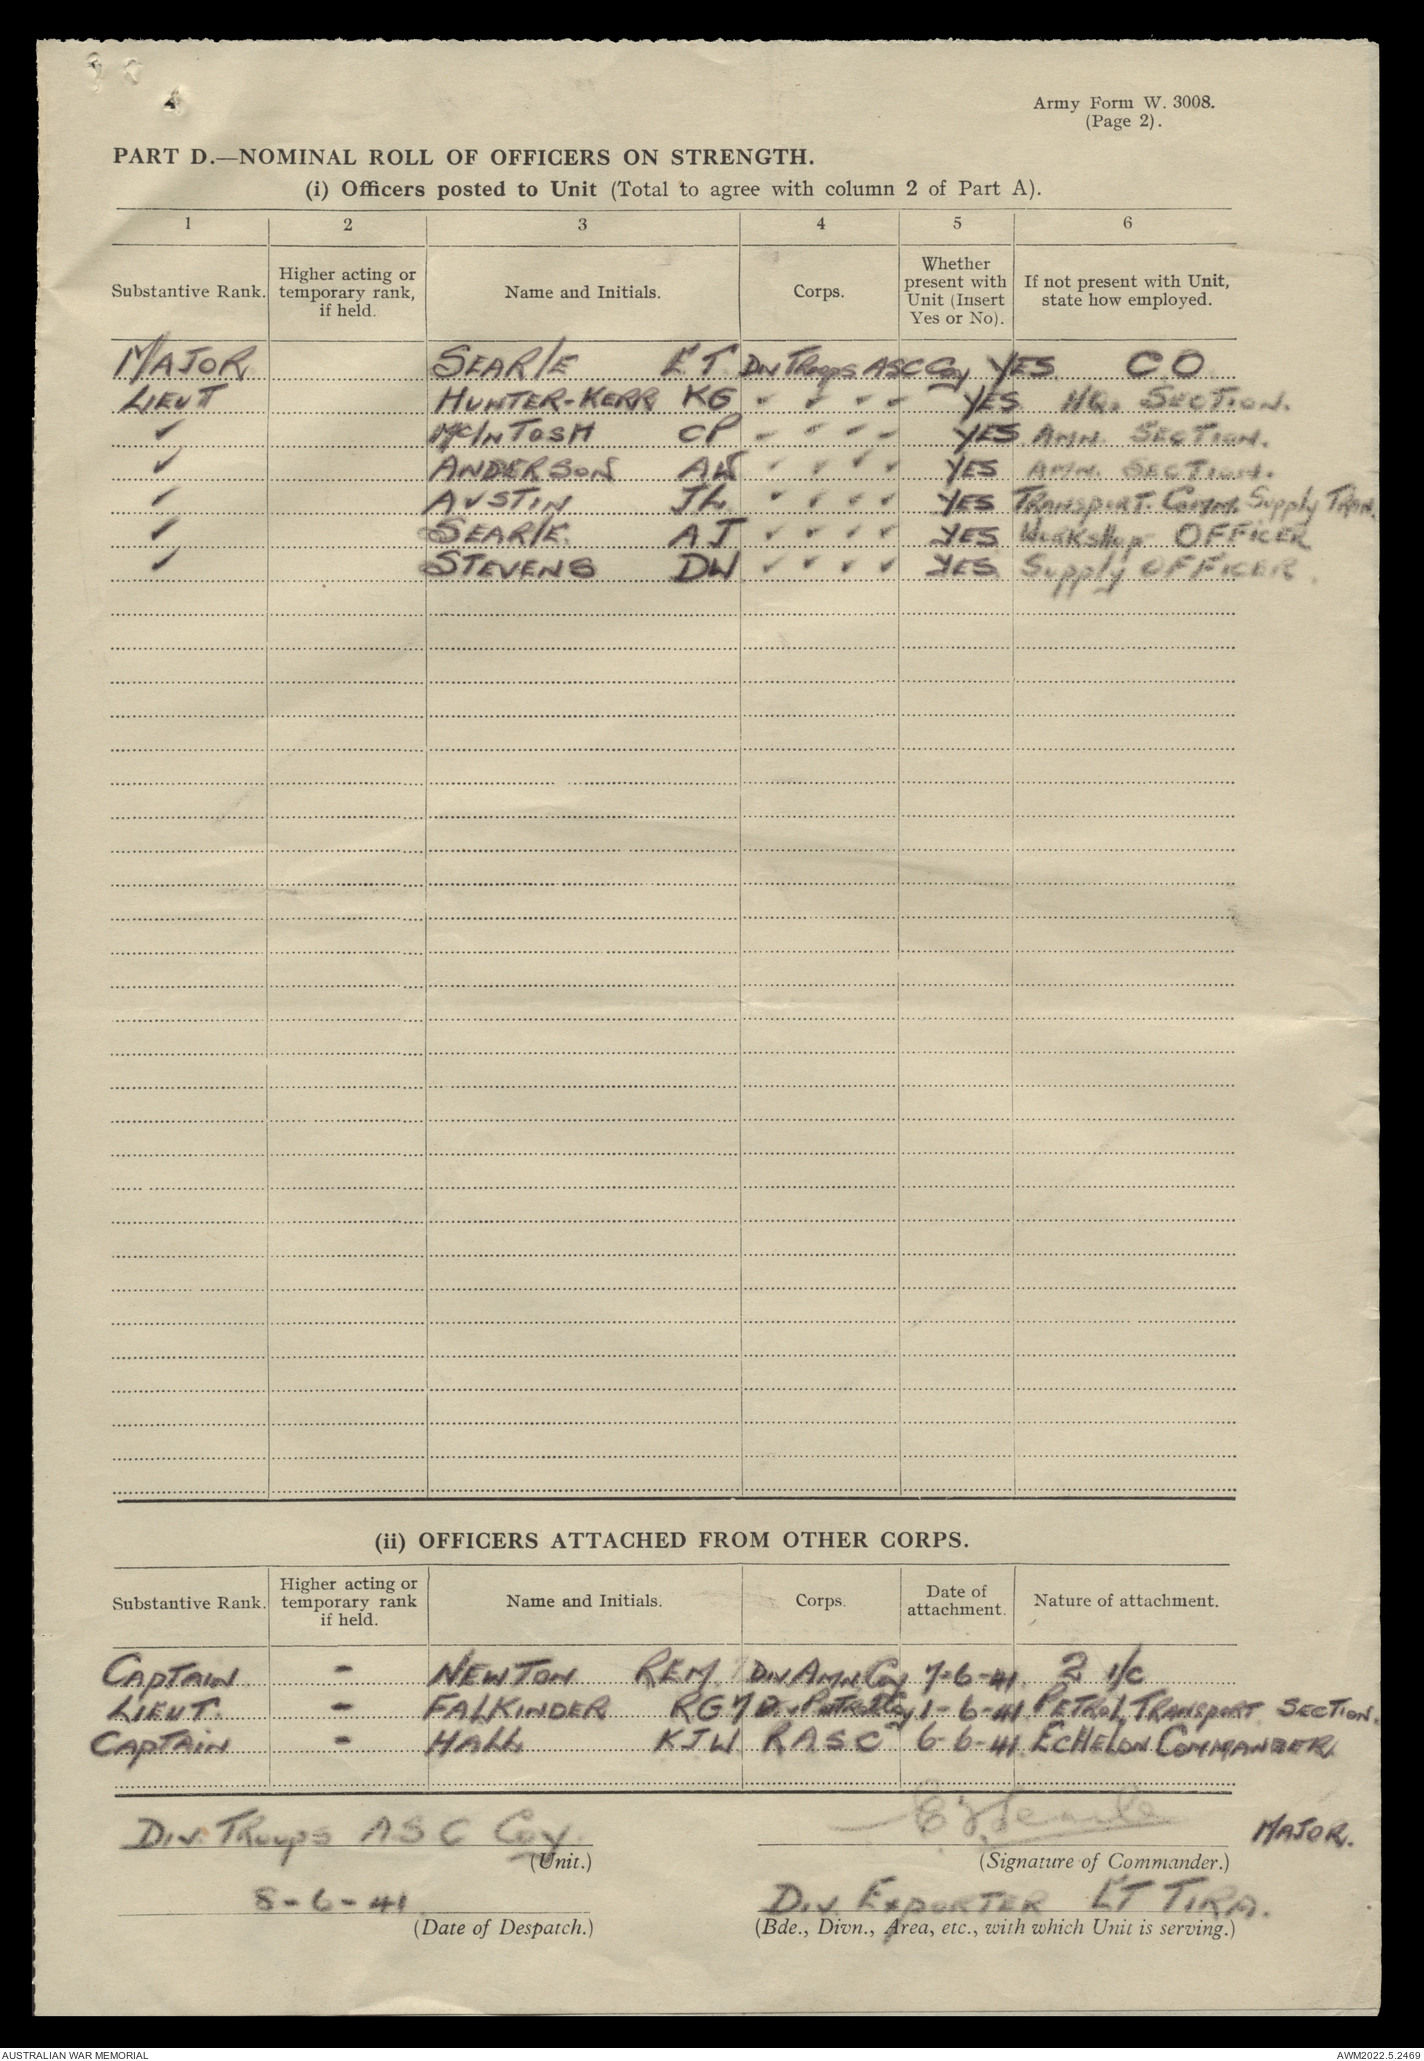 Army Form W. 3008.
(Page 2).
PART D.—NOMINAL ROLL OF OFFICERS ON STRENGTH.
(i) Officers posted to Unit (Total to agree with column 2 of Part A).
1 2 3 4 5 6
Substantive Rank. Higher acting or temporary rank, if held. Name and Initials. Corps. Whether present with Unit (Insert Yes or No). If not present with Unit, state how employed.
MAJOR SEARLE ET Div Troops ASC Coy YES CO
LIEUT HUNTER-KERR KG ✓ ✓ ✓ ✓ YES HQ. SECTION.
✓ McINTOSH CP ✓ ✓ ✓ ✓ YES AMN. SECTION.
✓ ANDERSON AW ✓ ✓ ✓ ✓ YES AMN. SECTION.
✓ AUSTIN JL ✓ ✓ ✓ ✓ YES TRANSPORT. Comm. Supply TRAN.
✓ SEARLE. AJ ✓ ✓ ✓ ✓ YES WORKSHOP OFFICER
✓ STEVENS DW ✓ ✓ ✓ ✓ YES Supply OFFICER.
(ii) OFFICERS ATTACHED FROM OTHER CORPS.
Substantive Rank. Higher acting or temporary rank if held. Name and Initials. Corps. Date of attachment. Nature of attachment.
CAPTAIN - NEWTON REM 7 DIV AMN Coy 7-6-41 2 I/C
LIEUT. - FALKINDER RG 7 Div Petrol Coy 1-6-41 PETROL TRANSPORT SECTION.
CAPTAIN - HALL KJW RASC 6-6-41 ECHELON COMMANDER.
Div. Troops ASC Coy.
(Unit.)
E T Searle MAJOR.
(Signature of Commander.)
8-6-41
(Date of Despatch.)
Div. EXPORTER ET TIRA.
(Bde., Divn., Area, etc., with which Unit is serving.)
AUSTRALIAN WAR MEMORIAL
AWM2022.5.2469